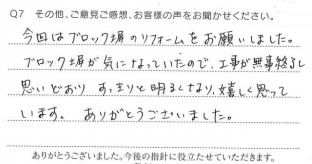 Q7 その他、ご意見ご感想、お客様の声をお聞かせください。
今回はブロック塀のリフォームをお願いしました。
ブロック塀が気になっていたので、工事が無事終了し
思いどおり すっきりと明るくなり、嬉しく思って
います。 ありがとうございました。
ありがとうございました。今後の指針に役立たせていただきます。